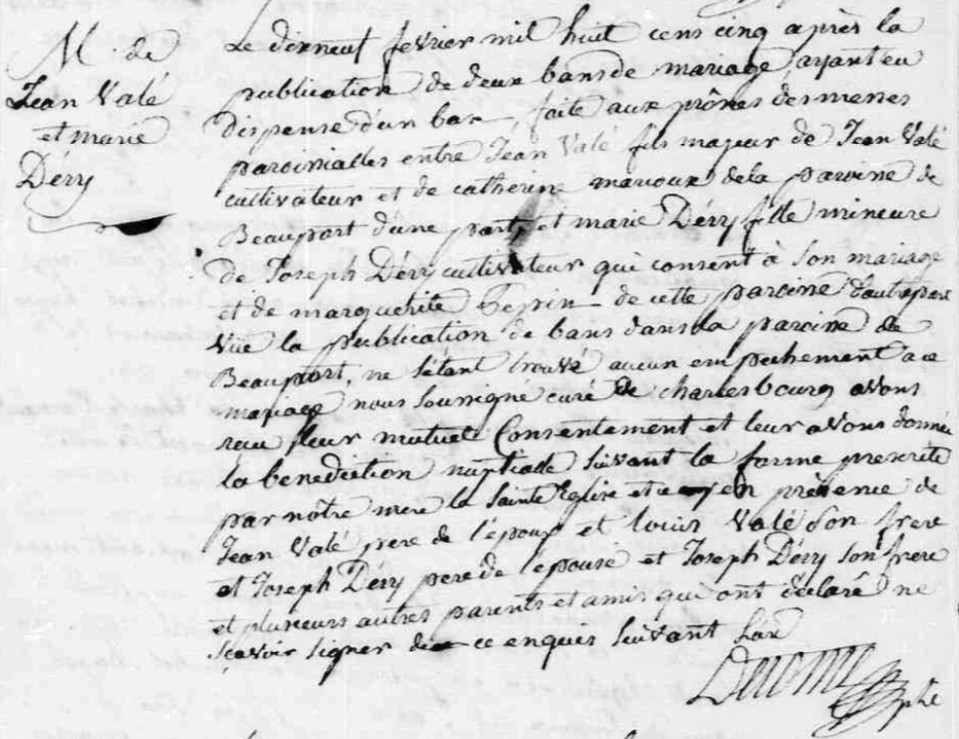 M. de
Jean Valé
et marie
Déry
Le dixneuf fevrier mil huit cens cinq après la
publication de deux bans de mariage, ayant eu
dispense d'un ban, faite aux prônes des messes
paroissialles entre Jean Valé fils majeur de Jean Valé
cultivateur et de catherine marcoux de la paroisse de
Beauport d'une part, et marie Déry fille mineure
de Joseph Déry cultivateur qui consent à son mariage
et de marguerite Pepin de cette paroisse d'autre part
vüe la publication de bans dans la paroisse de
Beauport, ne s'étant trouvé aucun empechement à ce
mariage nous soussigné curé de charlesbourg avons
reçu leur mutuel Consentement et leur avons donné
la benediction nuptialle suivant la forme prescrite
par nôtre mere la sainte Eglise et ce en présence de
Jean Valé pere de l'époux et louis Valé son frere
et Joseph Déry pere de l'epouse et Joseph Déry son frere
et plusieurs autres parents et amis qui ont déclaré ne
sçavoir signer de ce enquis suivant
ptre